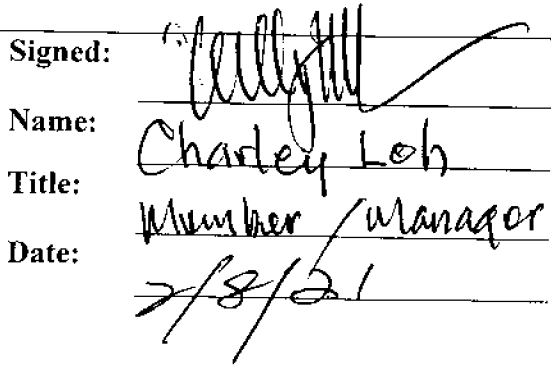 Signed:
Name: Charley Loh
Title: Member / Manager
Date: 2/8/21